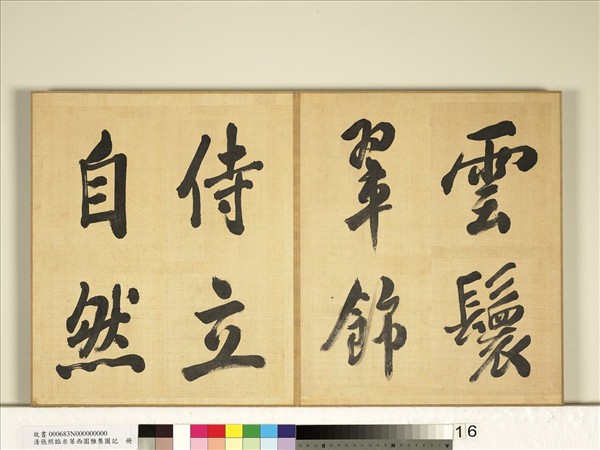 雲鬟
翠飾
侍立
自然
故書 000683N000000000
清張照臨米芾西園雅集圖記 冊
16